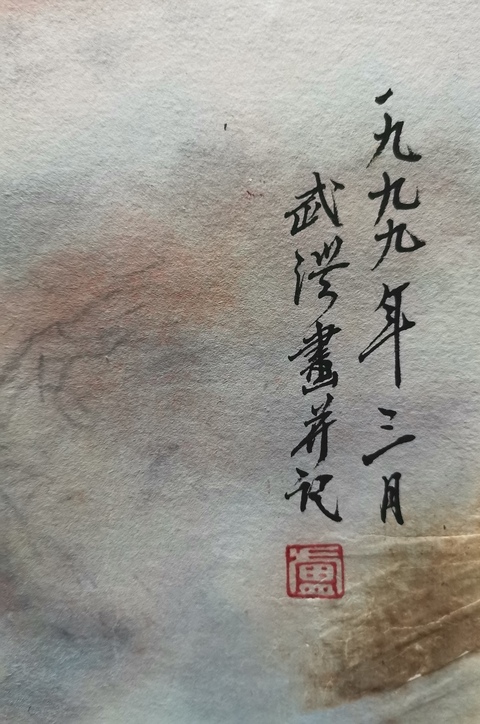 一九九九年三月
武畫并記
盧